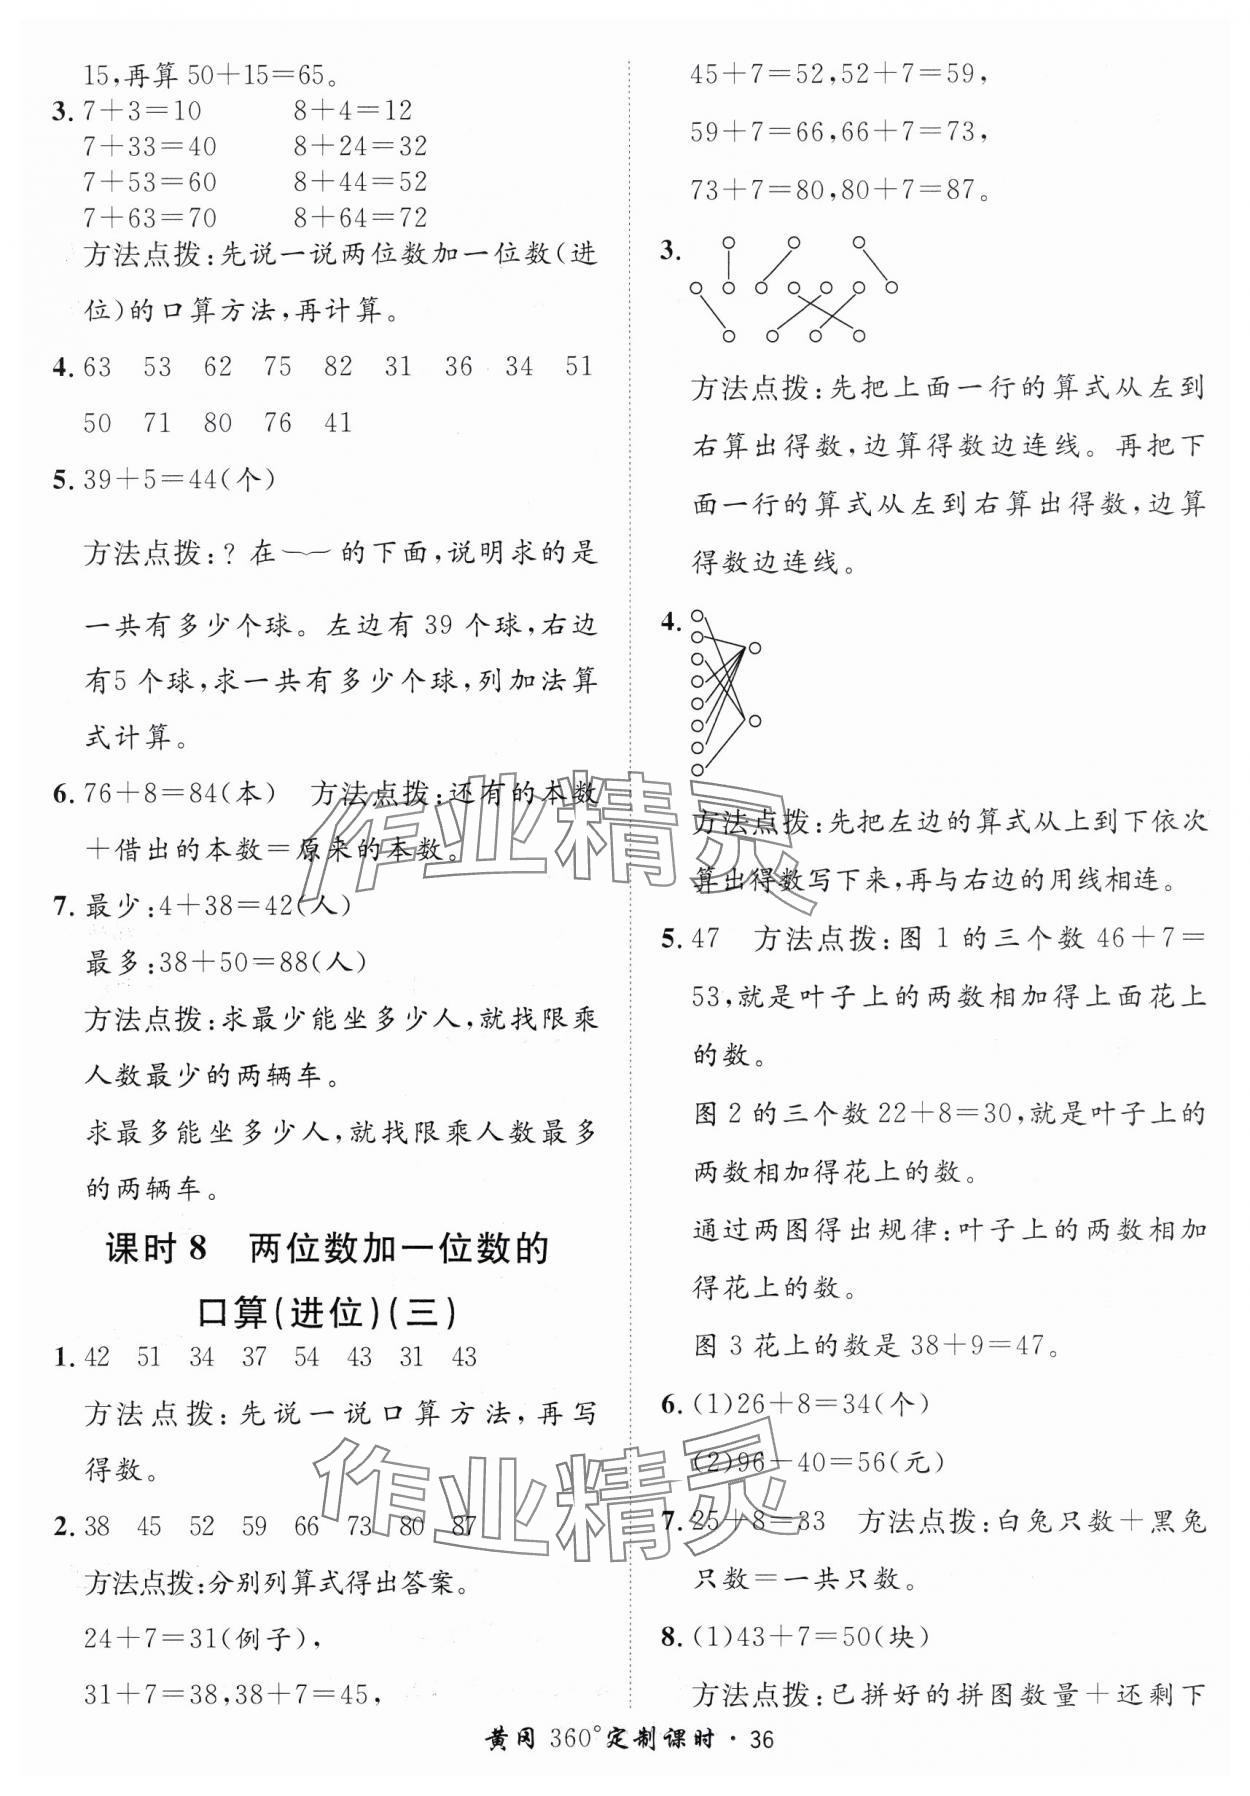 15,再算50+15=65。
3. 7+3=10 8+4=12
7+33=40 8+24=32
7+53=60 8+44=52
7+63=70 8+64=72
方法点拨:先说一说两位数加一位数(进
位)的口算方法,再计算。
4. 63 53 62 75 82 31 36 34 51
50 71 80 76 41
5. 39+5=44(个)
方法点拨:?在﹏的下面,说明求的是
一共有多少个球。左边有39个球,右边
有5个球,求一共有多少个球,列加法算
式计算。
6. 76+8=84(本) 方法点拨:还有的本数
+借出的本数=原来的本数。
7. 最少:4+38=42(人)
最多:38+50=88(人)
方法点拨:求最少能坐多少人,就找限乘
人数最少的两辆车。
求最多能坐多少人,就找限乘人数最多
的两辆车。
课时8 两位数加一位数的
口算(进位)(三)
1. 42 51 34 37 54 43 31 43
方法点拨:先说一说口算方法,再写
得数。
2. 38 45 52 59 66 73 80 87
方法点拨:分别列算式得出答案。
24+7=31(例子),
31+7=38,38+7=45,
45+7=52,52+7=59,
59+7=66,66+7=73,
73+7=80,80+7=87。
3.
方法点拨:先把上面一行的算式从左到
右算出得数,边算得数边连线。再把下
面一行的算式从左到右算出得数,边算
得数边连线。
4.
方法点拨:先把左边的算式从上到下依次
算出得数写下来,再与右边的用线相连。
5. 47 方法点拨:图1的三个数46+7=
53,就是叶子上的两数相加得上面花上
的数。
图2的三个数22+8=30,就是叶子上的
两数相加得花上的数。
通过两图得出规律:叶子上的两数相加
得花上的数。
图3花上的数是38+9=47。
6. (1)26+8=34(个)
(2)96-40=56(元)
7. 25+8=33 方法点拨:白兔只数+黑兔
只数=一共只数。
8. (1)43+7=50(块)
方法点拨:已拼好的拼图数量+还剩下
黄冈 360°定制课时·36
作业精灵
作业精灵